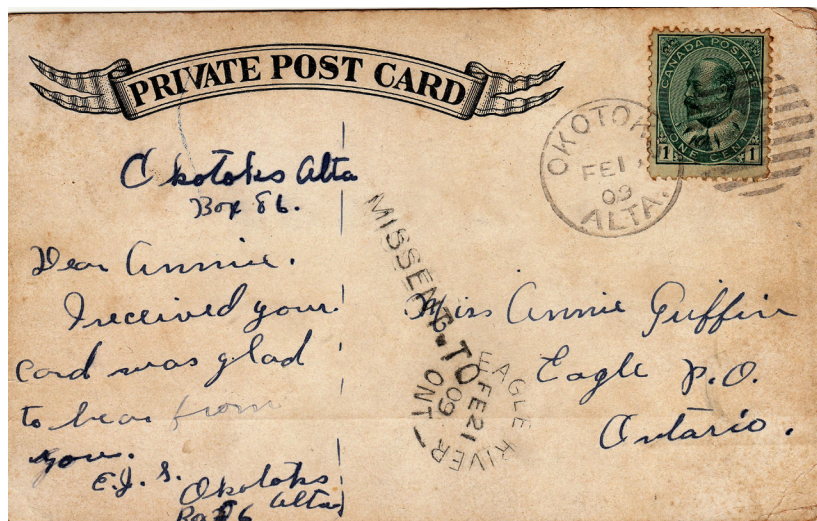 PRIVATE POST CARD
CANADA POSTAGE
1 ONE CENT 1
OKOTOK
FE 1
09
ALTA.
Okotoks Alta
Box 86.
Dear Annie.
I received your
card was glad
to hear from
you.
E.J.S.
Okotoks
Alta
MISSENT TO
EAGLE RIVER
FE 21
09
ONT
Miss Annie Griffin
Eagle P.O.
Ontario.